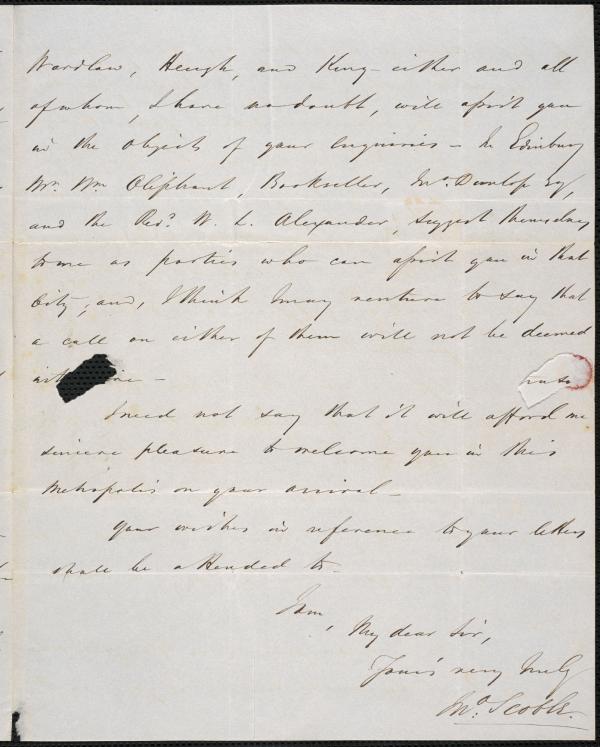 Wardlaw, Heugh, and King - either and all
of whom, I have no doubt, will assist you
in the objects of your enquiries - In Edinburg
Mr. Wm Oliphant, Bookseller, Jno. Dunlop Esq,
and the Revd. W. L. Alexander, suggest themselves
to me as parties who can assist you in that
City; and, I think I may venture to say that
a call on either of them will not be deemed
I need not say that it will afford me
sincere pleasure to welcome you in this
Metropolis on your arrival -
Your wishes in reference to your letters
shall be attended to -
I am,
My dear Sir,
Yours very truly
Jno. Scoble.